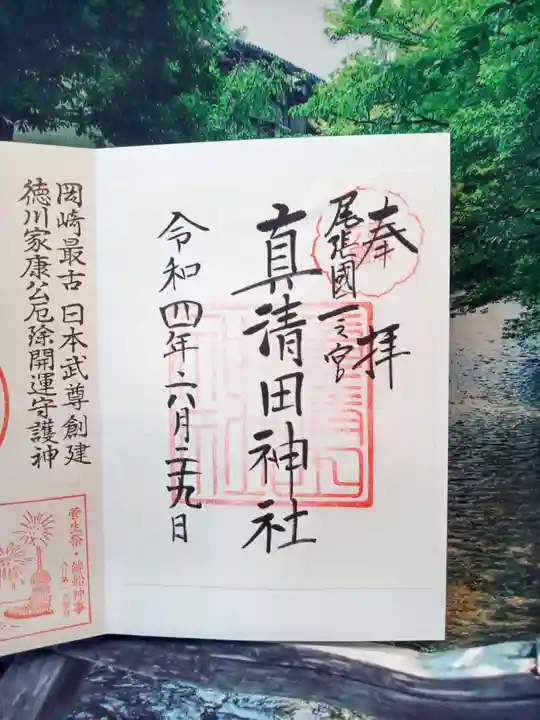 奉拝
尾張國一之宮
真清田神社
令和四年六月二十九日
岡崎最古 日本武尊創建
徳川家康公厄除開運守護神
菅生祭・鉾船神事